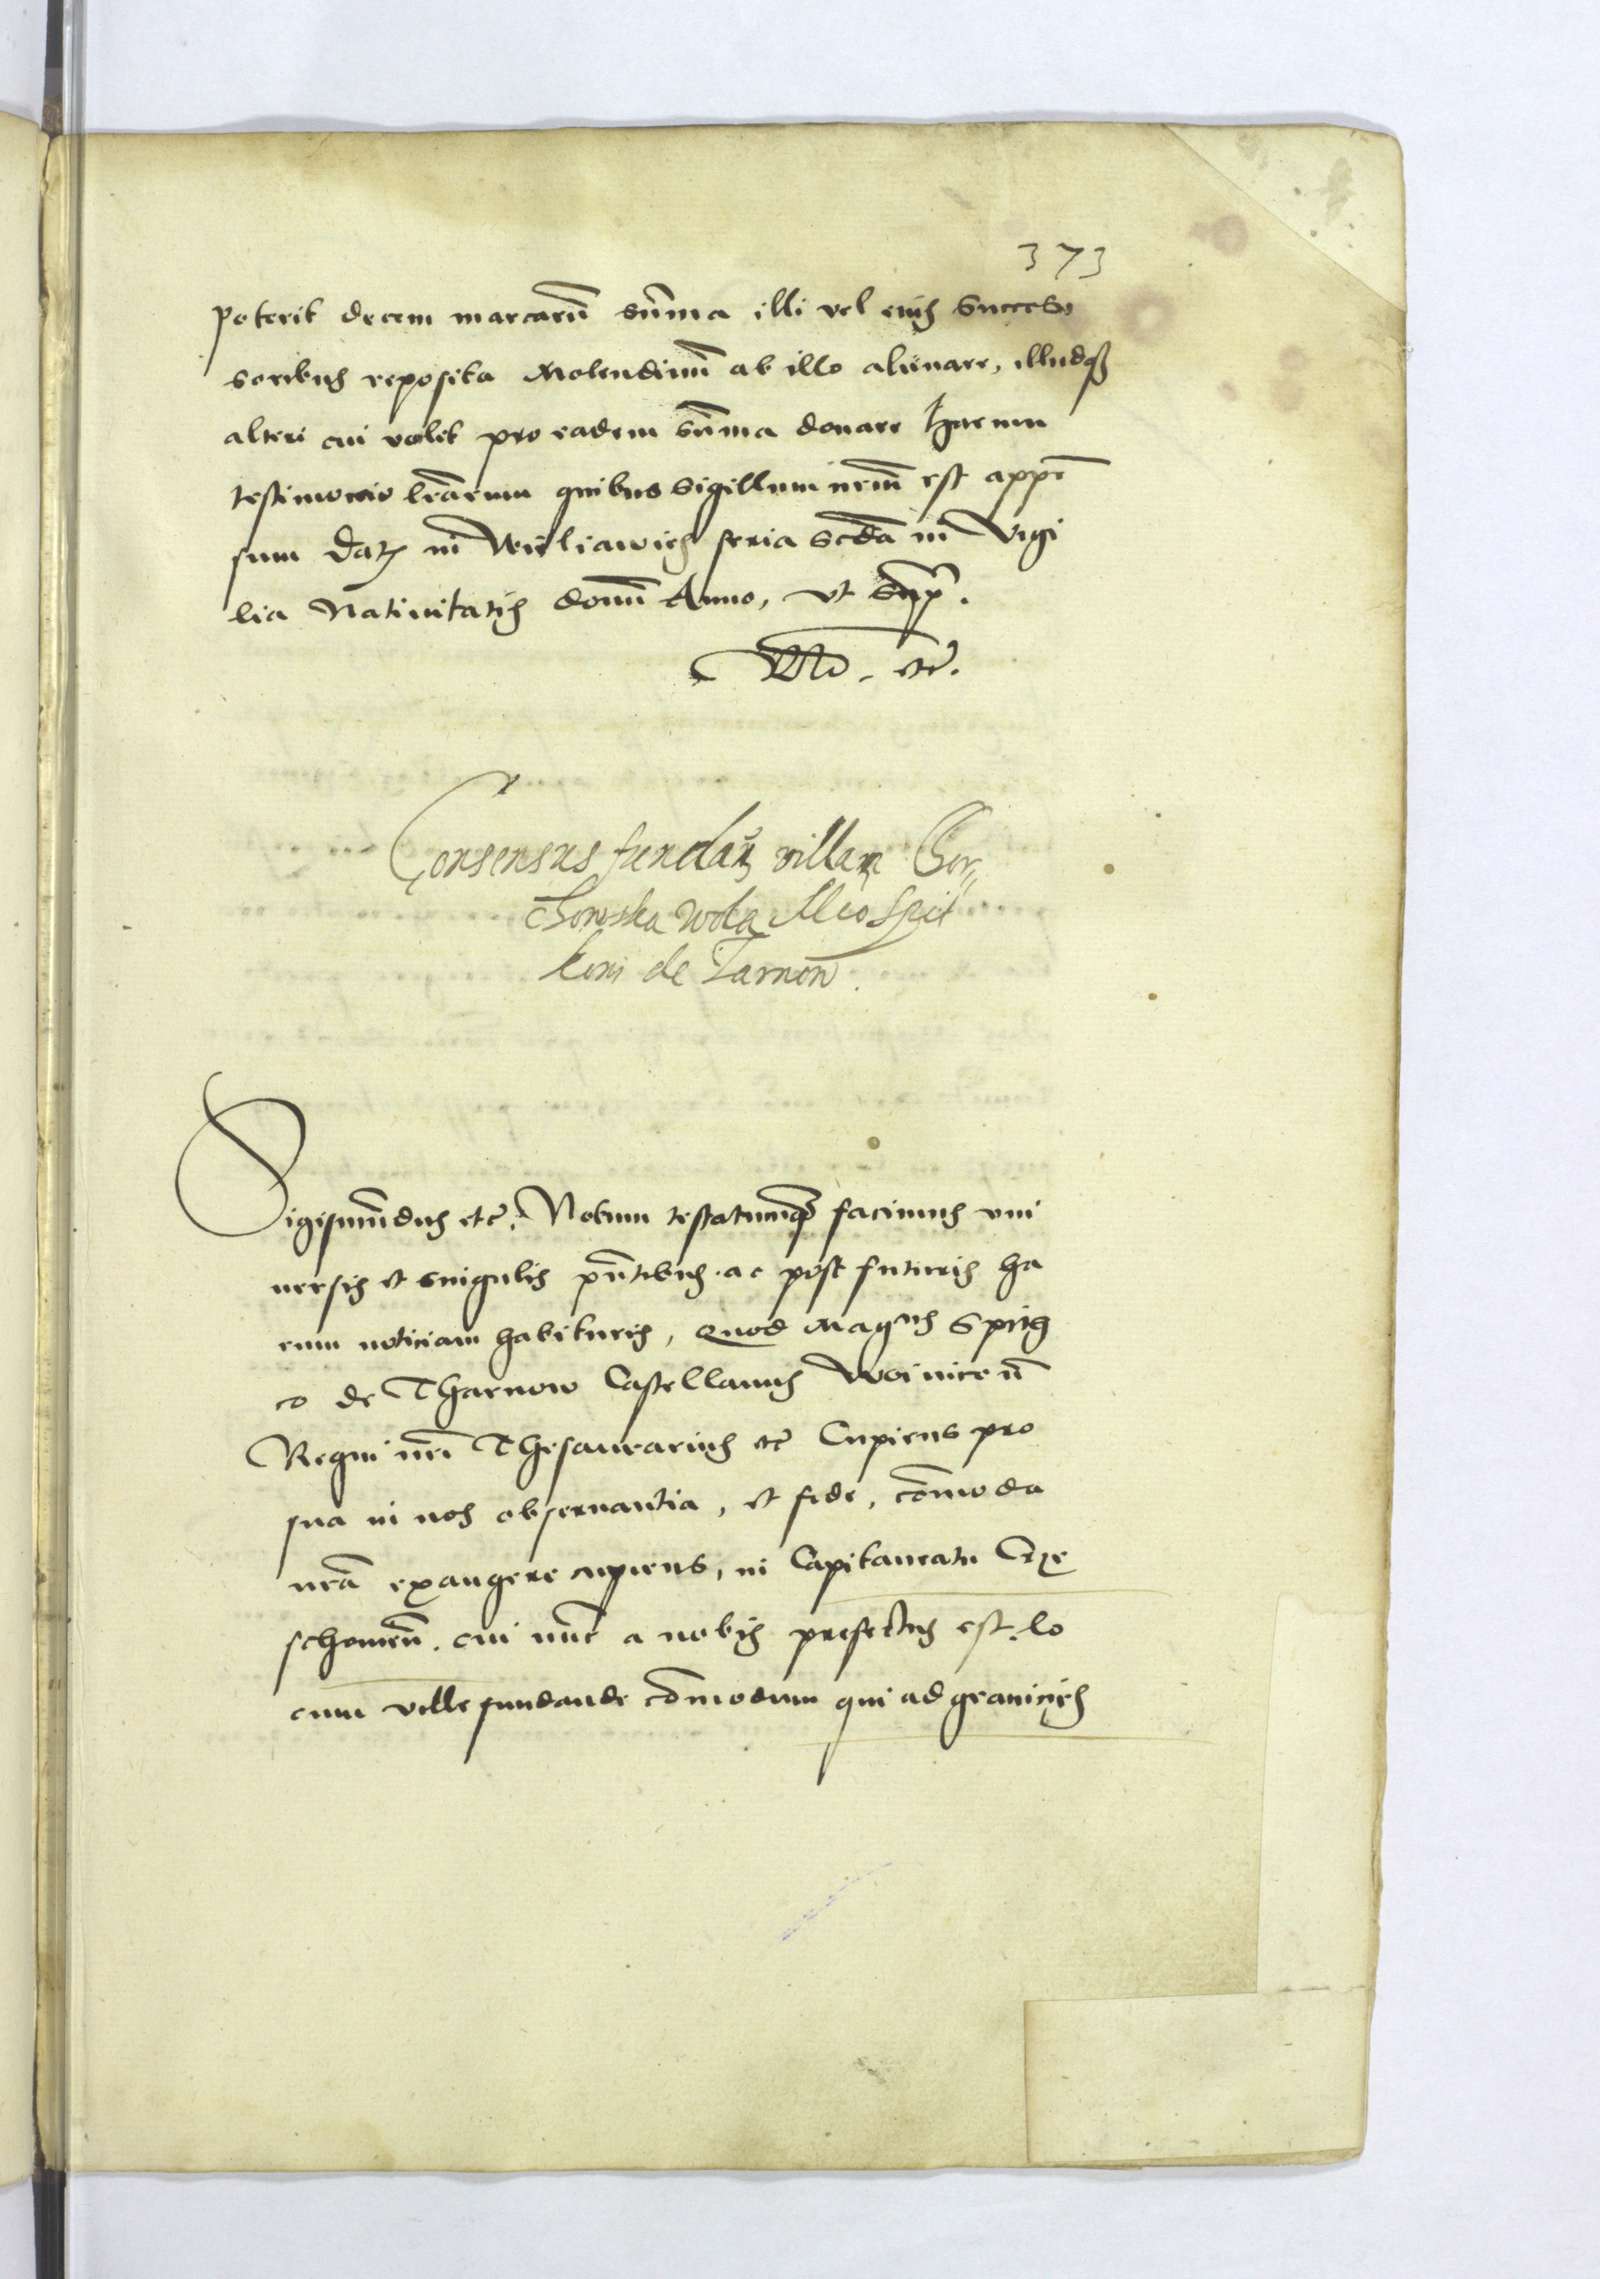 373
poterit decem marcarū sūma illi vel eius succes
soribus reposita Molendinū ab illo alienare, illudq3
alteri cui volet pro eadem sūma donare Harum
testimonio lrārum quibus sigillum nrūm est appē
sum Datȝ in Wieliawies feria scdā in Vigi
lia Nativitatis domī Anno, vt supͣ.
Mō. etc̄.
Consensus fundañ villam Gor„
Howska wola Mco Spit
koni de Tarnow̄.
Sigismūdus etc̄. Notum testatumq3 facimus vni
uersis et singulis pn̄tibus ac post futuris ha
rum noticiam habituris, Quod Magcus Spith
co de Tharnow Castellanus Woiniceñ
Regni nrī Thesaurarius etc̄ Cupiens pro
sua in nos obseruantia, et fide, cōmoda
nrā exaugere cupiens, in Capitaneatu Crze
schowieñ. cui nūc a nobis prefectus est, lo
cum ville fundande cōmodum qui ad granicies